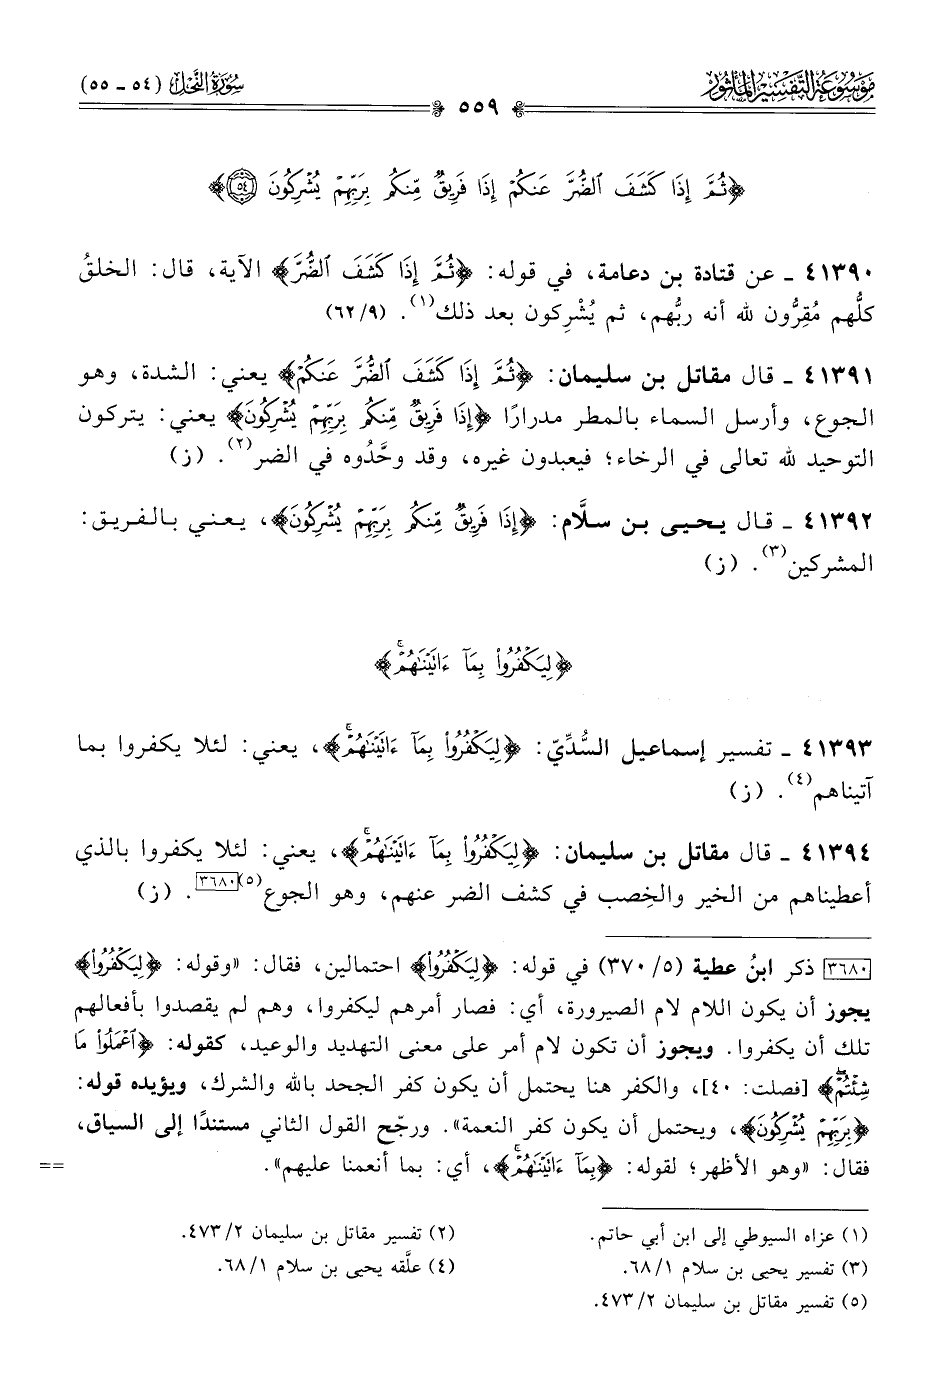 موسوعة التفسير المأثور
سورة النحل (٥٤ - ٥٥)
٥٥٩
﴿ثُمَّ إِذَا كَشَفَ ٱلضُّرَّ عَنكُمْ إِذَا فَرِيقٌ مِّنكُم بِرَبِّهِمْ يُشْرِكُونَ ٥٤﴾
٤١٣٩٠ ـ عن قتادة بن دعامة، في قوله: ﴿ثُمَّ إِذَا كَشَفَ ٱلضُّرَّ﴾ الآية، قال: الخلقُ
كلُّهم مُقِرُّون لله أنه ربُّهم، ثم يُشْرِكون بعد ذلك(١). (٩/٦٢)
٤١٣٩١ ـ قال مقاتل بن سليمان: ﴿ثُمَّ إِذَا كَشَفَ ٱلضُّرَّ عَنكُمْ﴾ يعني: الشدة، وهو
الجوع، وأرسل السماء بالمطر مدرارًا ﴿إِذَا فَرِيقٌ مِّنكُم بِرَبِّهِمْ يُشْرِكُونَ﴾ يعني: يتركون
التوحيد لله تعالى في الرخاء؛ فيعبدون غيره، وقد وحَّدُوه في الضر(٢). (ز)
٤١٣٩٢ ـ قال يحيى بن سلَّام: ﴿إِذَا فَرِيقٌ مِّنكُم بِرَبِّهِمْ يُشْرِكُونَ﴾، يعني بالفريق:
المشركين(٣). (ز)
﴿لِيَكْفُرُوا۟ بِمَآ ءَاتَيْنَٰهُمْ ۚ﴾
٤١٣٩٣ ـ تفسير إسماعيل السُّدِّيّ: ﴿لِيَكْفُرُوا۟ بِمَآ ءَاتَيْنَٰهُمْ ۚ﴾، يعني: لئلا يكفروا بما
آتيناهم(٤). (ز)
٤١٣٩٤ ـ قال مقاتل بن سليمان: ﴿لِيَكْفُرُوا۟ بِمَآ ءَاتَيْنَٰهُمْ ۚ﴾، يعني: لئلا يكفروا بالذي
أعطيناهم من الخير والخِصب في كشف الضر عنهم، وهو الجوع(٥)[٣٦٨٠]. (ز)
[٣٦٨٠] ذكر ابنُ عطية (٥/ ٣٧٠) في قوله: ﴿لِيَكْفُرُوا۟﴾ احتمالين، فقال: «وقوله: ﴿لِيَكْفُرُوا۟﴾
يجوز أن يكون اللام لام الصيرورة، أي: فصار أمرهم ليكفروا، وهم لم يقصدوا بأفعالهم
تلك أن يكفروا. ويجوز أن تكون لام أمر على معنى التهديد والوعيد، كقوله: ﴿ٱعْمَلُوا۟ مَا
شِئْتُمْ ۖ﴾ [فصلت: ٤٠]، والكفر هنا يحتمل أن يكون كفر الجحد بالله والشرك، ويؤيده قوله:
﴿بِرَبِّهِمْ يُشْرِكُونَ﴾، ويحتمل أن يكون كفر النعمة». ورجّح القول الثاني مستندًا إلى السياق،
فقال: «وهو الأظهر؛ لقوله: ﴿بِمَآ ءَاتَيْنَٰهُمْ ۚ﴾، أي: بما أنعمنا عليهم». ==
(١) عزاه السيوطي إلى ابن أبي حاتم.
(٢) تفسير مقاتل بن سليمان ٢/ ٤٧٣.
(٣) تفسير يحيى بن سلام ١/ ٦٨.
(٤) علَّقه يحيى بن سلام ١/ ٦٨.
(٥) تفسير مقاتل بن سليمان ٢/ ٤٧٣.